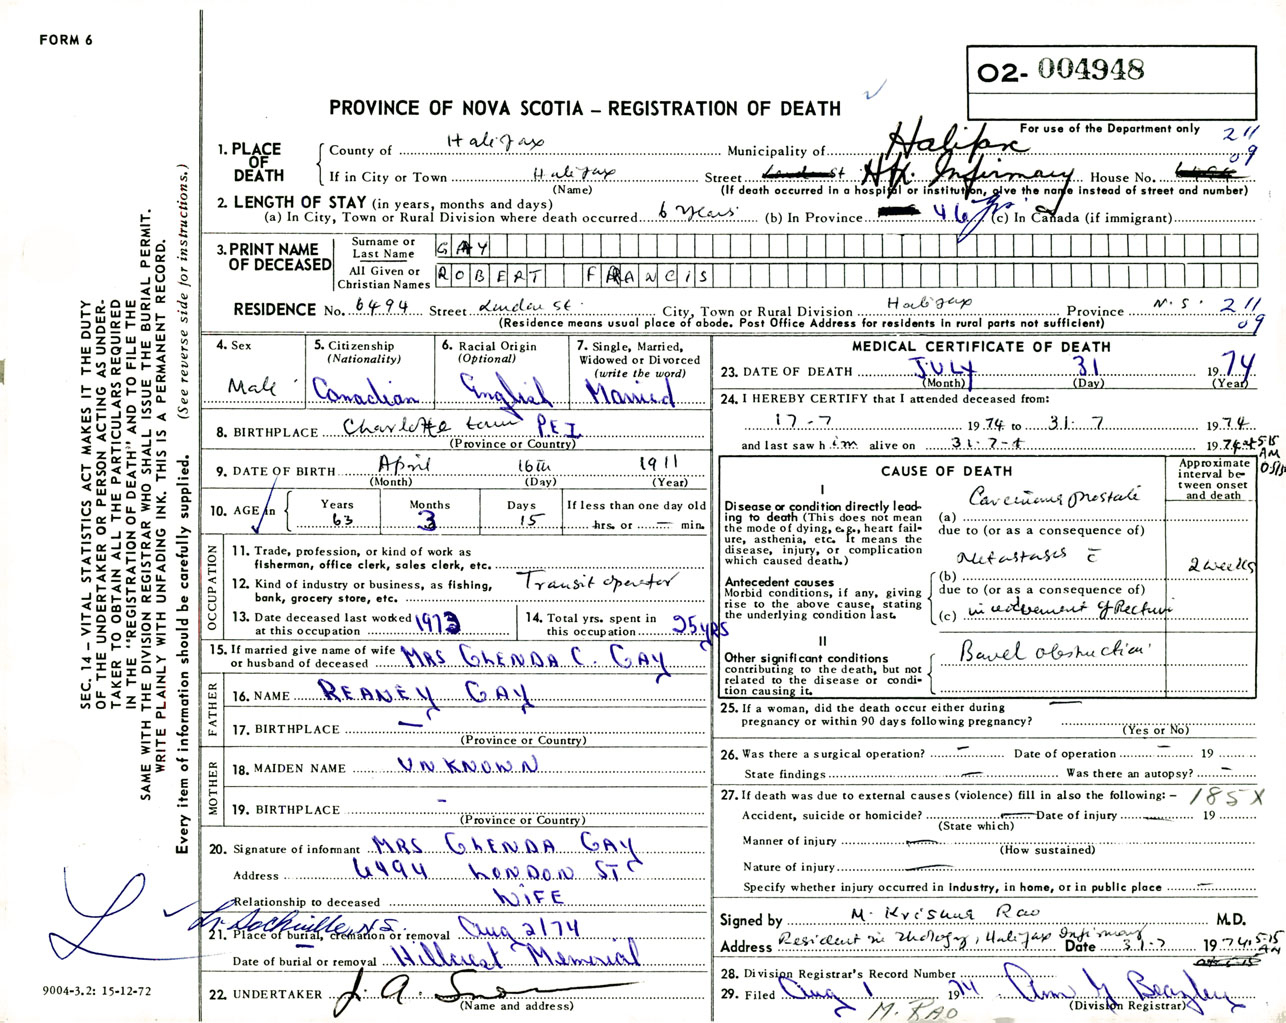 FORM 6
O2- 004948
PROVINCE OF NOVA SCOTIA – REGISTRATION OF DEATH
For use of the Department only
211
09
1. PLACE OF DEATH
County of Halifax Municipality of Halifax
If in City or Town Halifax Street London St Hfx. Infirmary House No.
(Name) (If death occurred in a hospital or institution, give the name instead of street and number)
2. LENGTH OF STAY (in years, months and days)
(a) In City, Town or Rural Division where death occurred 6 years (b) In Province 46 yrs (c) In Canada (if immigrant)
3. PRINT NAME OF DECEASED
Surname or Last Name GAY
All Given or Christian Names ROBERT FRANCIS
RESIDENCE No. 6494 Street London St. City, Town or Rural Division Halifax Province N.S. 211
09
(Residence means usual place of abode. Post Office Address for residents in rural parts not sufficient)
4. Sex Male
5. Citizenship (Nationality) Canadian
6. Racial Origin (Optional) English
7. Single, Married, Widowed or Divorced (write the word) Married
8. BIRTHPLACE Charlottetown PEI
(Province or Country)
9. DATE OF BIRTH April 16th 1911
(Month) (Day) (Year)
10. AGE in
Years 63
Months 3
Days 15
If less than one day old
hrs. or — min.
OCCUPATION
11. Trade, profession, or kind of work as fisherman, office clerk, sales clerk, etc.
12. Kind of industry or business, as fishing, bank, grocery store, etc. Transit operator
13. Date deceased last worked at this occupation 1973
14. Total yrs. spent in this occupation 25 YRS
15. If married give name of wife or husband of deceased MRS GLENDA C. GAY
FATHER
16. NAME REANEY GAY
17. BIRTHPLACE —
(Province or Country)
MOTHER
18. MAIDEN NAME UNKNOWN
19. BIRTHPLACE -
(Province or Country)
20. Signature of informant MRS GLENDA GAY
Address 6494 LONDON ST
Relationship to deceased WIFE
Lr Sackville N.S.
21. Place of burial, cremation or removal Aug 2/74
Date of burial or removal Hillcrest Memorial
22. UNDERTAKER J. A. Snow
(Name and address)
MEDICAL CERTIFICATE OF DEATH
23. DATE OF DEATH JULY 31 1974
(Month) (Day) (Year)
24. I HEREBY CERTIFY that I attended deceased from:
17-7 1974 to 31-7 1974
and last saw him alive on 31-7- 1974 at 5:15 AM
CAUSE OF DEATH
Approximate interval between onset and death
I
Disease or condition directly leading to death (This does not mean the mode of dying, e.g., heart failure, asthenia, etc. It means the disease, injury, or complication which caused death.)
(a) Carcinoma prostate
due to (or as a consequence of)
Antecedent causes
Morbid conditions, if any, giving rise to the above cause, stating the underlying condition last.
(b) Metastases c̄ 2 weeks
due to (or as a consequence of)
(c) involvement of Rectum
II
Other significant conditions contributing to the death, but not related to the disease or condition causing it.
Bowel obstruction
25. If a woman, did the death occur either during pregnancy or within 90 days following pregnancy? —
(Yes or No)
26. Was there a surgical operation? – Date of operation – 19
State findings — Was there an autopsy? –
27. If death was due to external causes (violence) fill in also the following: – 185X
Accident, suicide or homicide? — Date of injury — 19
(State which)
Manner of injury —
(How sustained)
Nature of injury —
Specify whether injury occurred in industry, in home, or in public place —
Signed by M. Krishna Rao M.D.
Address Resident in Urology, Halifax Infirmary Date 31-7 1974 5:15 AM
28. Division Registrar's Record Number
29. Filed Aug 1 1974 Ann Y Beazley
(Division Registrar)
M. RAO
SEC. 14 – VITAL STATISTICS ACT MAKES IT THE DUTY
OF THE UNDERTAKER OR PERSON ACTING AS UNDER-
TAKER TO OBTAIN ALL THE PARTICULARS REQUIRED
IN THE "REGISTRATION OF DEATH" AND TO FILE THE
SAME WITH THE DIVISION REGISTRAR WHO SHALL ISSUE THE BURIAL PERMIT.
WRITE PLAINLY WITH UNFADING INK. THIS IS A PERMANENT RECORD.
Every item of information should be carefully supplied. (See reverse side for instructions.)
9004-3.2: 15-12-72